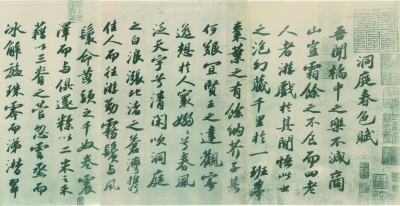 洞庭春色賦
吾聞橘中之樂不減商
山豈霜餘之不食而四老
人者遊戲於其間悟此世
之泡幻藏千里於一班舉
棗葉之有餘納芥子其
何艱宜賢王之達觀寄
逸想於人寰嫋々兮春風
泛天宇兮清閑吹洞庭
之白浪漲北渚之蒼灣攜
佳人而往遊勤霧鬢與風
鬟命黃頭之千奴卷震
澤而與俱還糅以二米之禾
藉以三脊之菅忽雲烝而
冰解旋珠零而涕潸翠